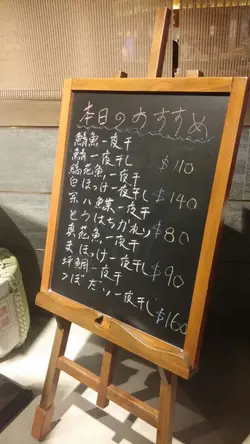 本日のおすすめ
鯖魚一夜干
鯖一夜干し $110
縞花魚一夜干
白ほっけ一夜干し $140
宗八鰈一夜干
そうはちかれい $80
真花魚一夜干
まほっけ一夜干し $90
坪鯛一夜干
つぼだい一夜干し $160